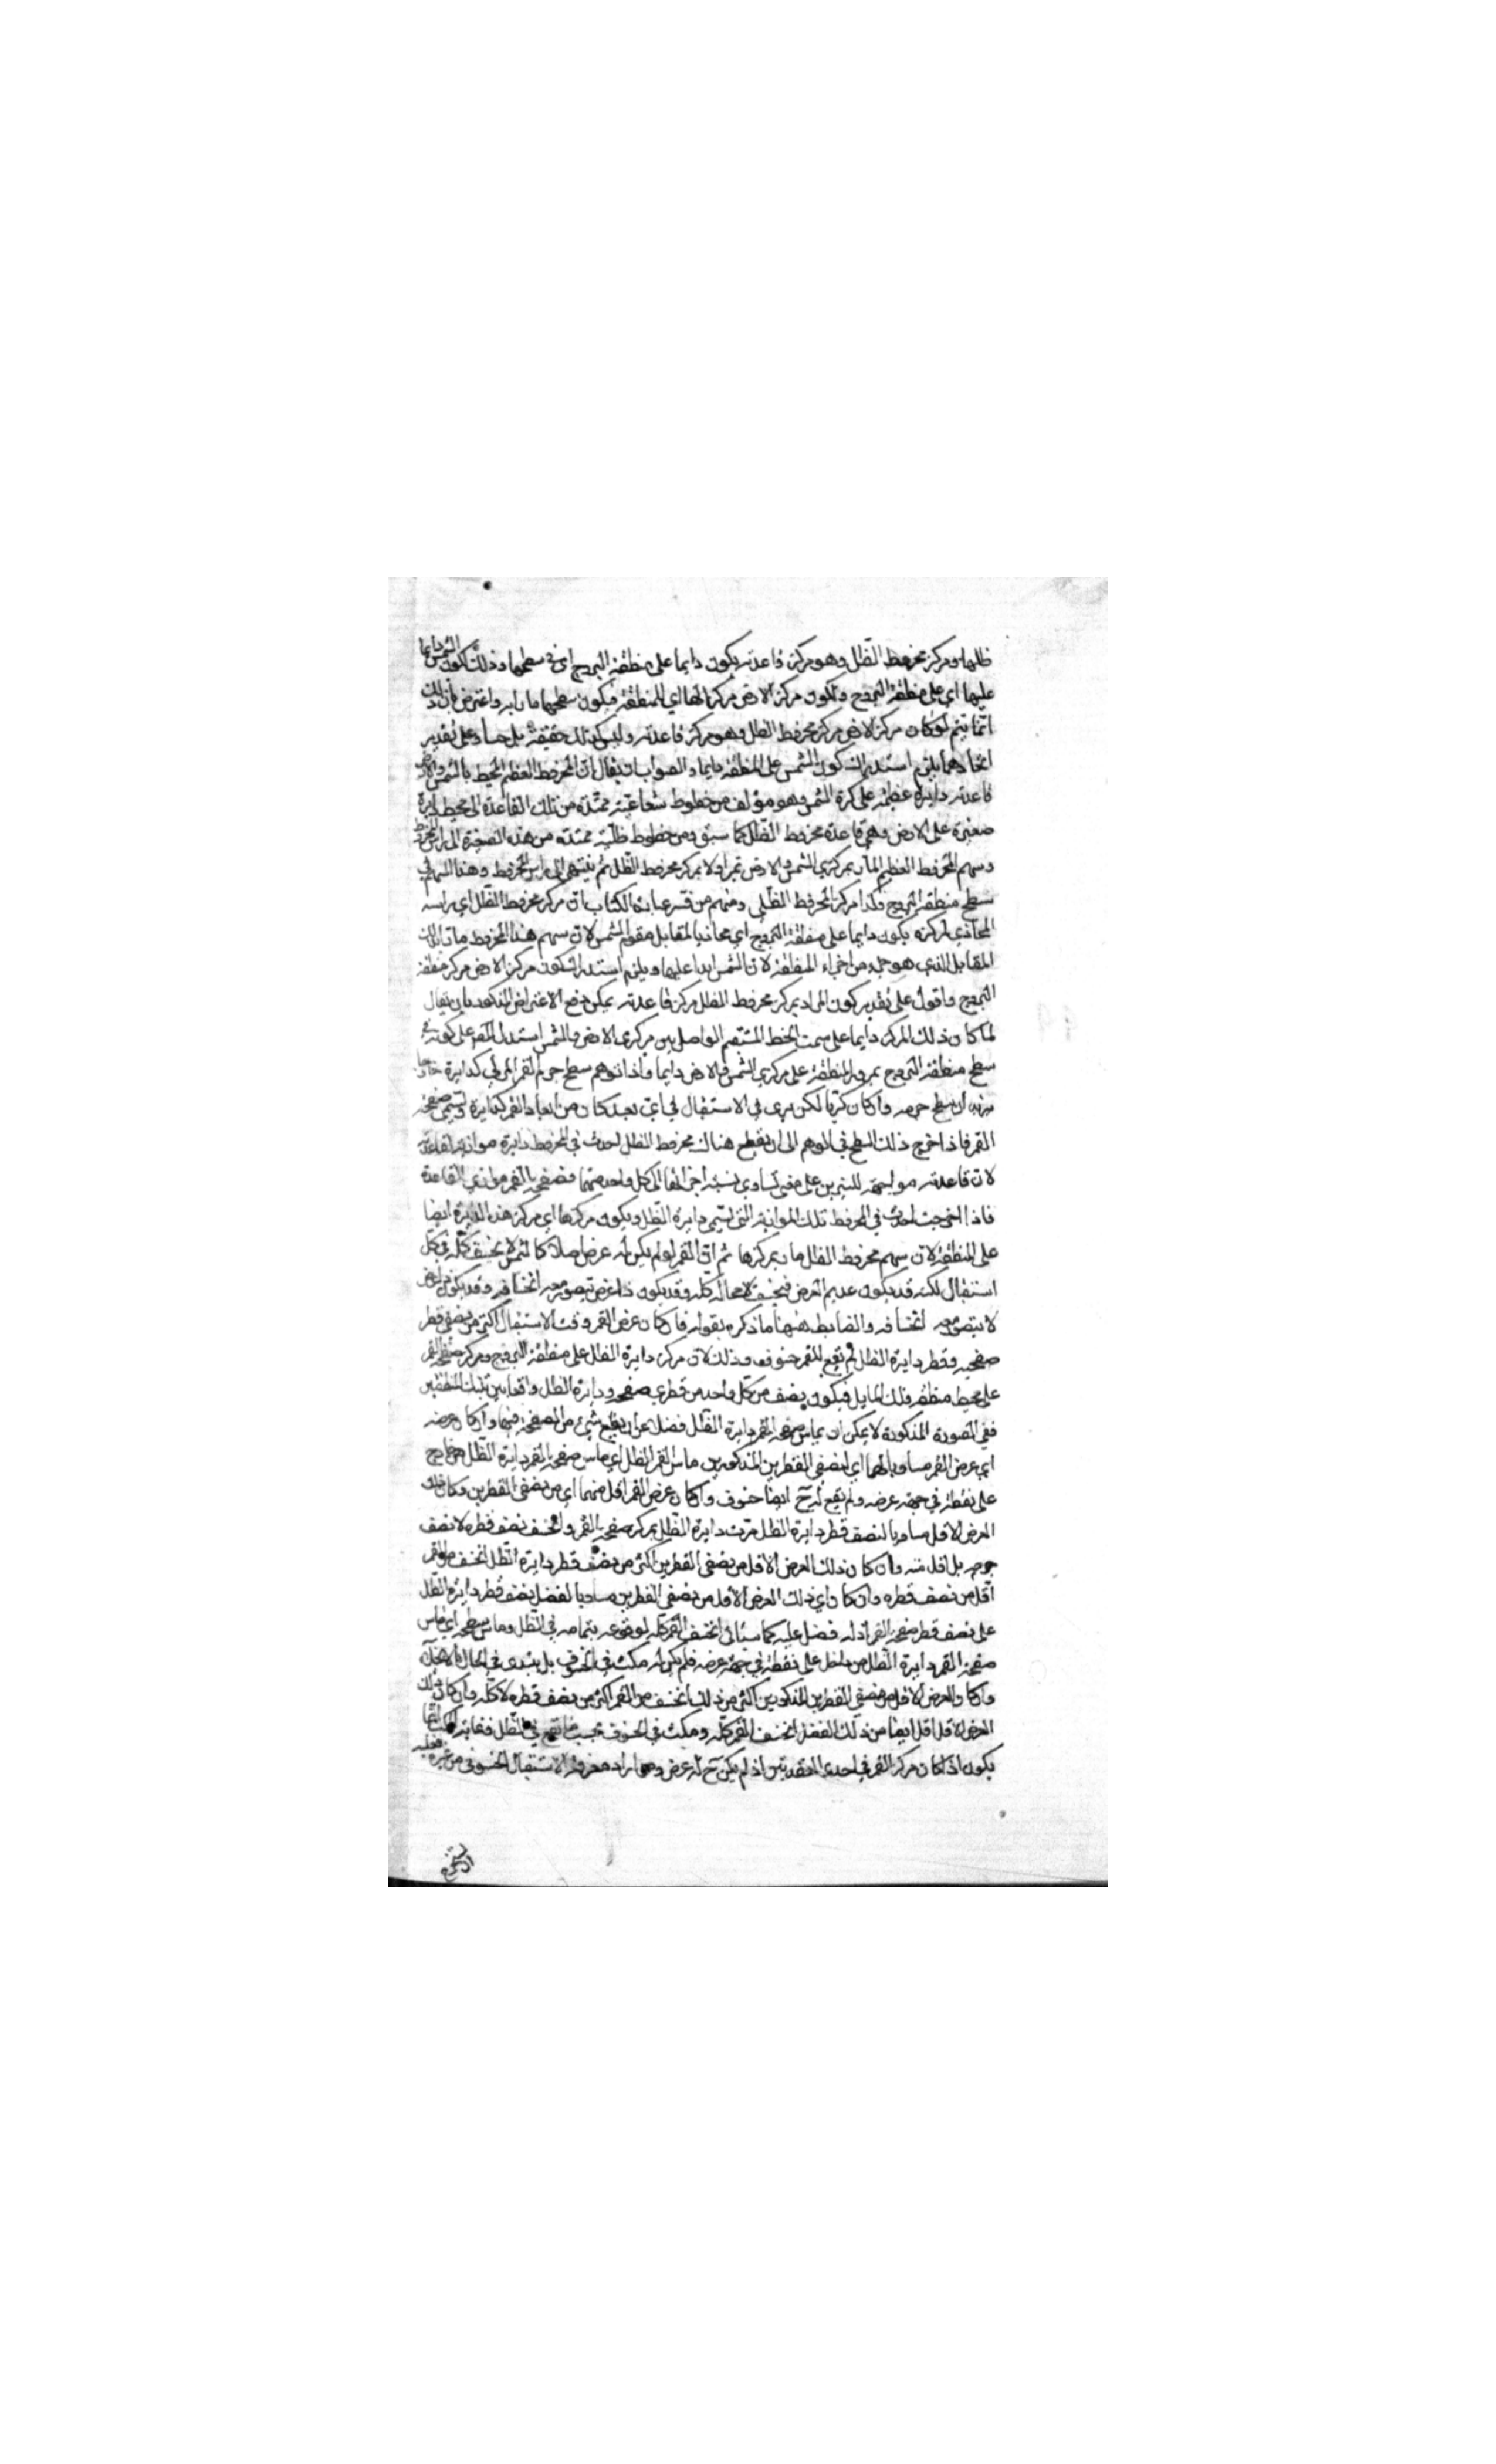 ظلها ومركز مخروط الظل وهو مركز قاعدته يكون دايما على منطقة البروج اى فى سطحها وذلك لكون الشمس دايما
عليها اي على منطقة البروج ولكون مركز الارض مركزا لها اي للمنطقة فيكون سطحها مارا به واعترض بان ذلك
انما يتم لو كان مركز الارض مركز مخروط الظل وهو مركز قاعدته وليس كذلك حقيقة بل حسا وعلى تقدير
اتحادهما يلزم استدراك كون الشمس على المنطقة دايما والصواب ان يقال ان المخروط العظيم المحيط بالشمس والارض
قاعدته دايرة عظيمة على كرة الشمس وهو مؤلف من خطوط شعاعية ممتدة من تلك القاعدة الى محيط دايرة
صغيرة على الارض وهي قاعدة مخروط الظل كما سبق ومن خطوط ظلية ممتدة من هذه الصغيرة الى راس المخروط
وسهم المخروط العظيم المار بمركزي الشمس والارض تمر اولا بمركز مخروط الظل ثم ينتهى الى راس المخروط وهذا السهم في
سطح منطقة البروج فكذا مركز المخروط الظلي ومنهم من فسر عبارة الكتاب بان مركز مخروط الظل اي راسه
المحاذي لمركزه يكون دايما على منطقة البروج اي محاذيا لمقابل مقوم الشمس لان سهم هذا المخروط مار بذلك
المقابل الذي هو جزء من اجزاء المنطقة لان الشمس ابدا عليها ويلزم استدراك كون مركز الارض مركز منطقة
البروج واقول على تقدير كون المراد بمركز مخروط الظل مركز قاعدته يمكن دفع الاعتراض المذكور بان يقال
لما كان ذلك المركز دايما على سمت الخط المستقيم الواصل بين مركزى الارض والشمس استدل المص على كونه فى
سطح منطقة البروج بمرور المنطقة على مركزي الشمس والارض دايما واذا توهم سطح جرم القمر المرئي كدايرة
يريد ان سطح جرمه وان كان كريا لكن يرى في الاستقبال في اي بعد كان من ابعاد القمر كدايرة وتسمى صفحة
القمر فاذا اخرج ذلك السطح في الوهم الى ان يقطع هناك مخروط الظل لحدث في المخروط دايرة موازية لقاعدته
لان قاعدته مواجهة للنيرين على معنى تساوي نسبة اجزائها الى كل واحد منهما فصفحة القمر موازي القاعدة
فاذا اخرجت احدثت في المخروط تلك الموازية التي تسمى دايرة الظل ويكون مركزها اي مركز هذه الدايرة ايضا
على المنطقة لان سهم مخروط الظل مار بمركزها ثم ان القمر لو لم يكن له عرض اصلا كالشمس لانخسف كله في كل
استقبال لكنه قد يكون عديم العرض فينخسف لا محالة كله وقد يكون ذا عرض يتصور معه انخسافه وقد يكون ذا عرض
لا يتصور معه انخسافه والضابط ههنا ما ذكره بقوله فان كان عرض القمر وقت الاستقبال اكثر من نصفي قطر
صفحته وقطر دايرة الظل لم يقع للقمر خسوف وذلك لان مركز دايرة الظل على منطقة البروج ومركز صفحة القمر
على محيط منطقة فلك المايل فيكون نصف من كل واحد من قطري صفحته ودايرة الظل واقعا بين تينك المنطقتين
ففي الصورة المذكورة لا يمكن ان يماس صفحة القمر دايرة الظل فضلا عن ان يقع شيء من الصفحة فيها وان كان عرضه
اي عرض القمر مساويا لهما اي لنصفي القطرين المذكورين ماس القمر الظل اي ماس صفحة القمر دايرة الظل من خارج
على نقطة في جهة عرضه ولم يقع له ح ايضا خسوف وان كان عرض القمر اقل منهما اي من نصفي القطرين وكان ذلك
العرض الاقل مساويا لنصف قطر دايرة الظل مرت دايرة الظل بمركز صفحة القمر وانخسف نصف قطره لا نصف
جرمه بل اقل منه وان كان ذلك العرض الاقل من نصفى القطرين اكثر من نصف قطر دايرة الظل انخسف من القمر
اقل من نصف قطره وان كان اي ذلك العرض الاقل من نصفي القطرين مساويا لفضل نصف قطر دايرة الظل
على نصف قطر صفحة القمر اذ له فضل عليه كما سيأتى انخسف القمر كله لوقوعه بتمامه في الظل وماس سطحه اي ماس
صفحة القمر دايرة الظل من داخل على نقطة في جهة عرضه فلم يكن له مكث في الخسوف بل يبتدى في الحال بالانجلاء
وان كان العرض الاقل من نصفي القطرين المذكورين اكثر من ذلك انخسف من القمر اكثر من نصف قطره لا كله وان كان ذلك
العرض الاقل اقل ايضا من ذلك الفضل انخسف القمر كله ومكث في الخسوف بحسب في الظل فغاية المكث انما
يكون اذا كان مركز القمر في احدى العقدتين اذ لم يكن ح له عرض ومن اراد معرفة الاستقبال الخسوفي من غيره فعليه